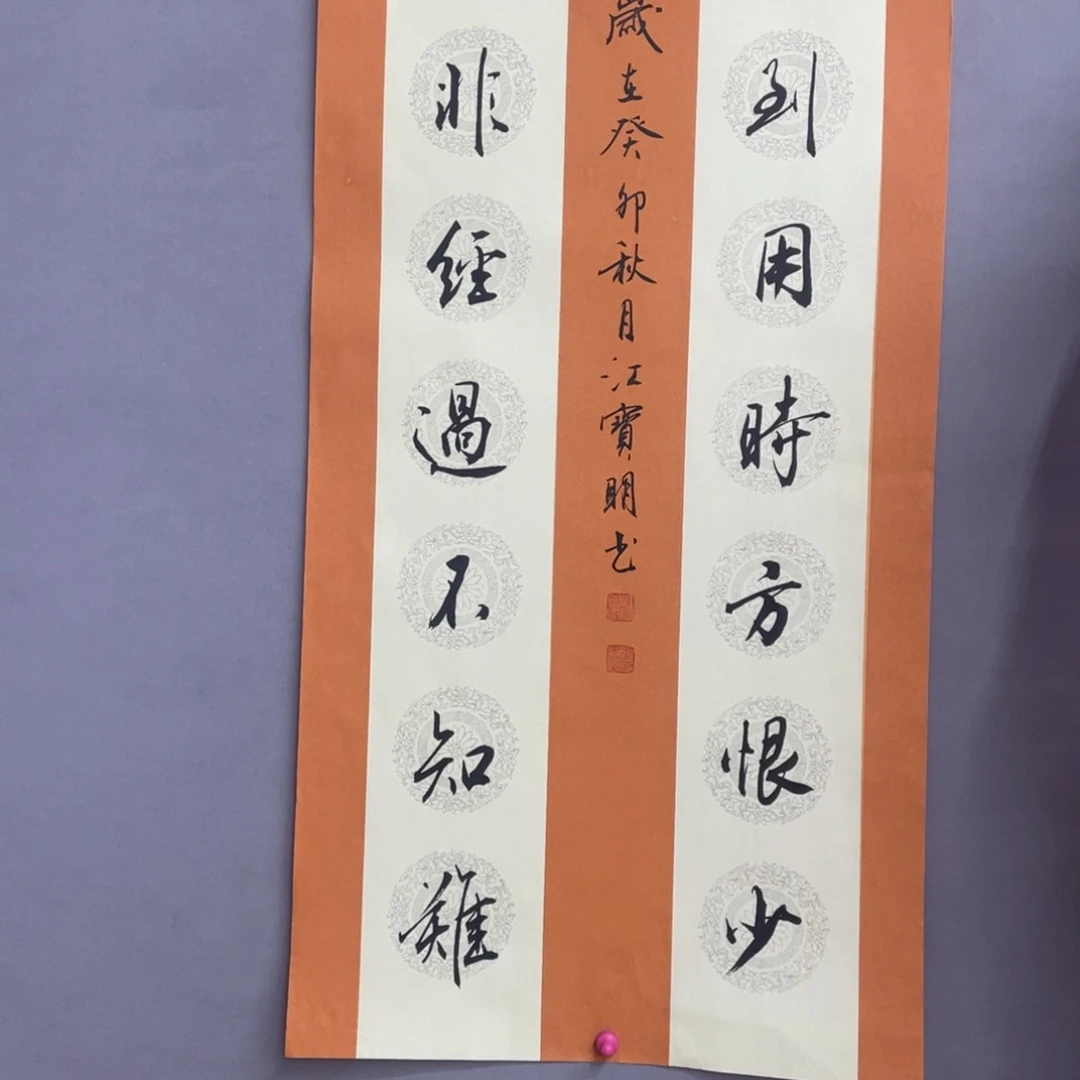 到用時方恨少
非經過不知難
歲在癸卯秋月江寶明书